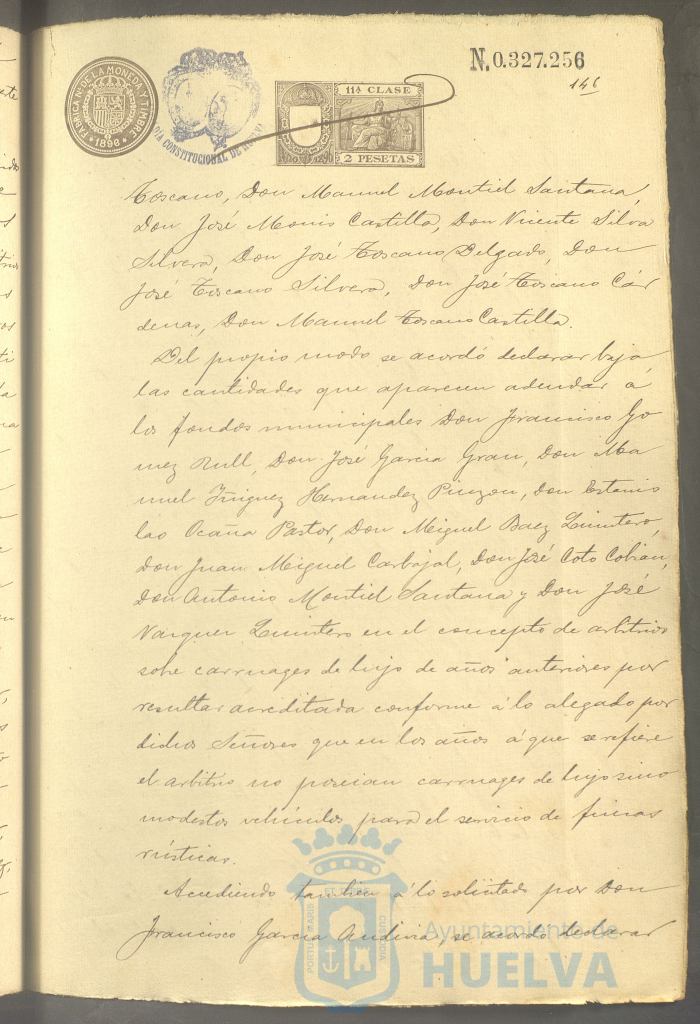 N. 0.327.256
146
FABRICA Nal. DE LA MONEDA Y TIMBRE
1896
CONSTITUCIONAL DE
11ª CLASE
2 PESETAS
Toscano, Don Manuel Montiel Santana,
Don José Monis Castilla, Don Vicente Silva
Silvera, Don José Toscano Delgado, Don
José Toscano Silvera, Don José Toscano Cár
denas, Don Manuel Toscano Castilla.
Del propio modo se acordó declarar baja
las cantidades que aparecen adeudar á
los fondos municipales Don Francisco Go
mez Rull, Don José Garcia Gran, Don Ma
nuel Iñiguez Hernandez Pinzon, don Estanis
lao Ocaña Pastor, Don Miguel Baez Quintero,
don Juan Miguel Carbajal, Don José Coto Cobian,
Don Antonio Montiel Santana y Don José
Vazquez Quintero en el concepto de arbitrios
sobre carruages de lujo de años anteriores por
resultar acreditada conforme á lo alegado por
dichos Señores que en los años á que se refiere
el arbitrio no poseian carruages de lujo sino
modestos vehiculos para el servicio de fincas
rústicas.
Accediendo tambien á lo solicitado por Don
Francisco Garcia Andivia, se acordó declarar
PORTUS MARIS ET TERRAE CUSTODIA
Ayuntamiento de
HUELVA